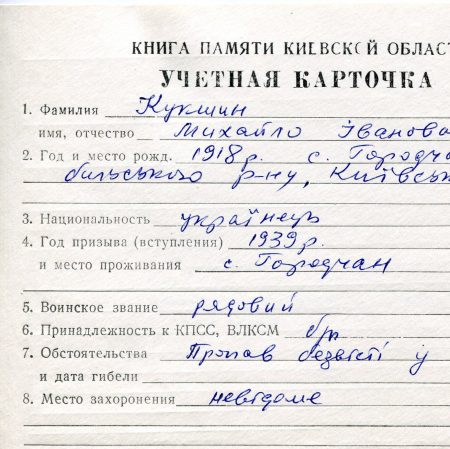 КНИГА ПАМЯТИ КИЕВСКОЙ ОБЛАС
УЧЕТНАЯ КАРТОЧКА
1. Фамилия Кукшин
имя, отчество Михайло Іванов
2. Год и место рожд. 1918 р. с. Городчан
більського р-ну, Київськ
3. Национальность українець
4. Год призыва (вступления) 1939 р.
и место проживания с. Городчан
5. Воинское звание рядовий
6. Принадлежность к КПСС, ВЛКСМ б/п
7. Обстоятельства Пропав безвісті у
и дата гибели
8. Место захоронения невідоме